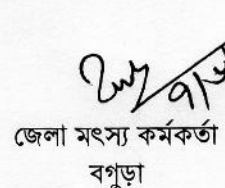 জেলা মৎস্য কর্মকর্তা
বগুড়া